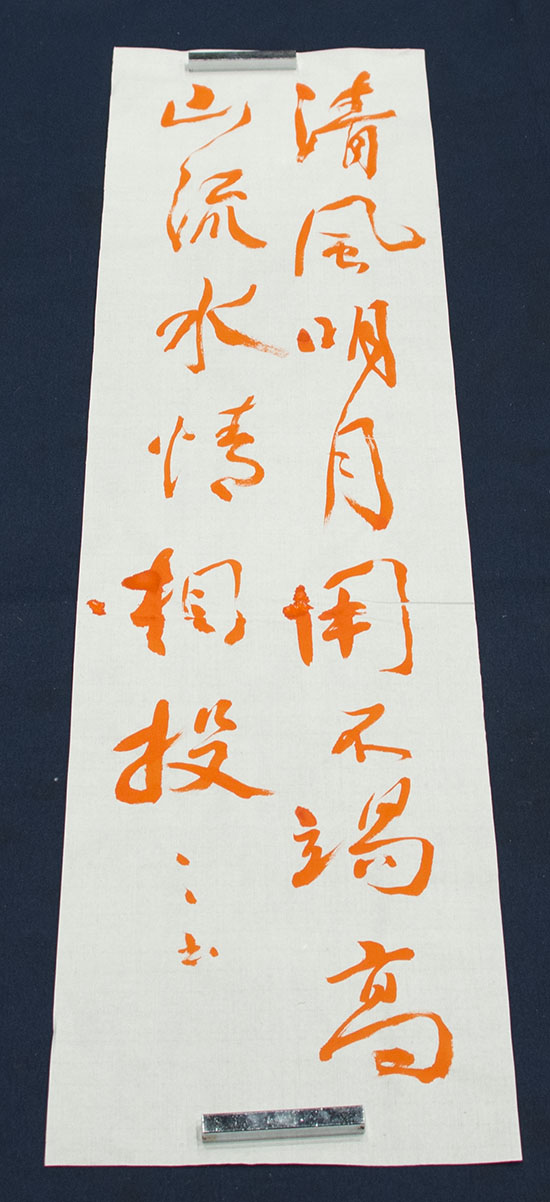 清風明月用不竭高
山流水情相投